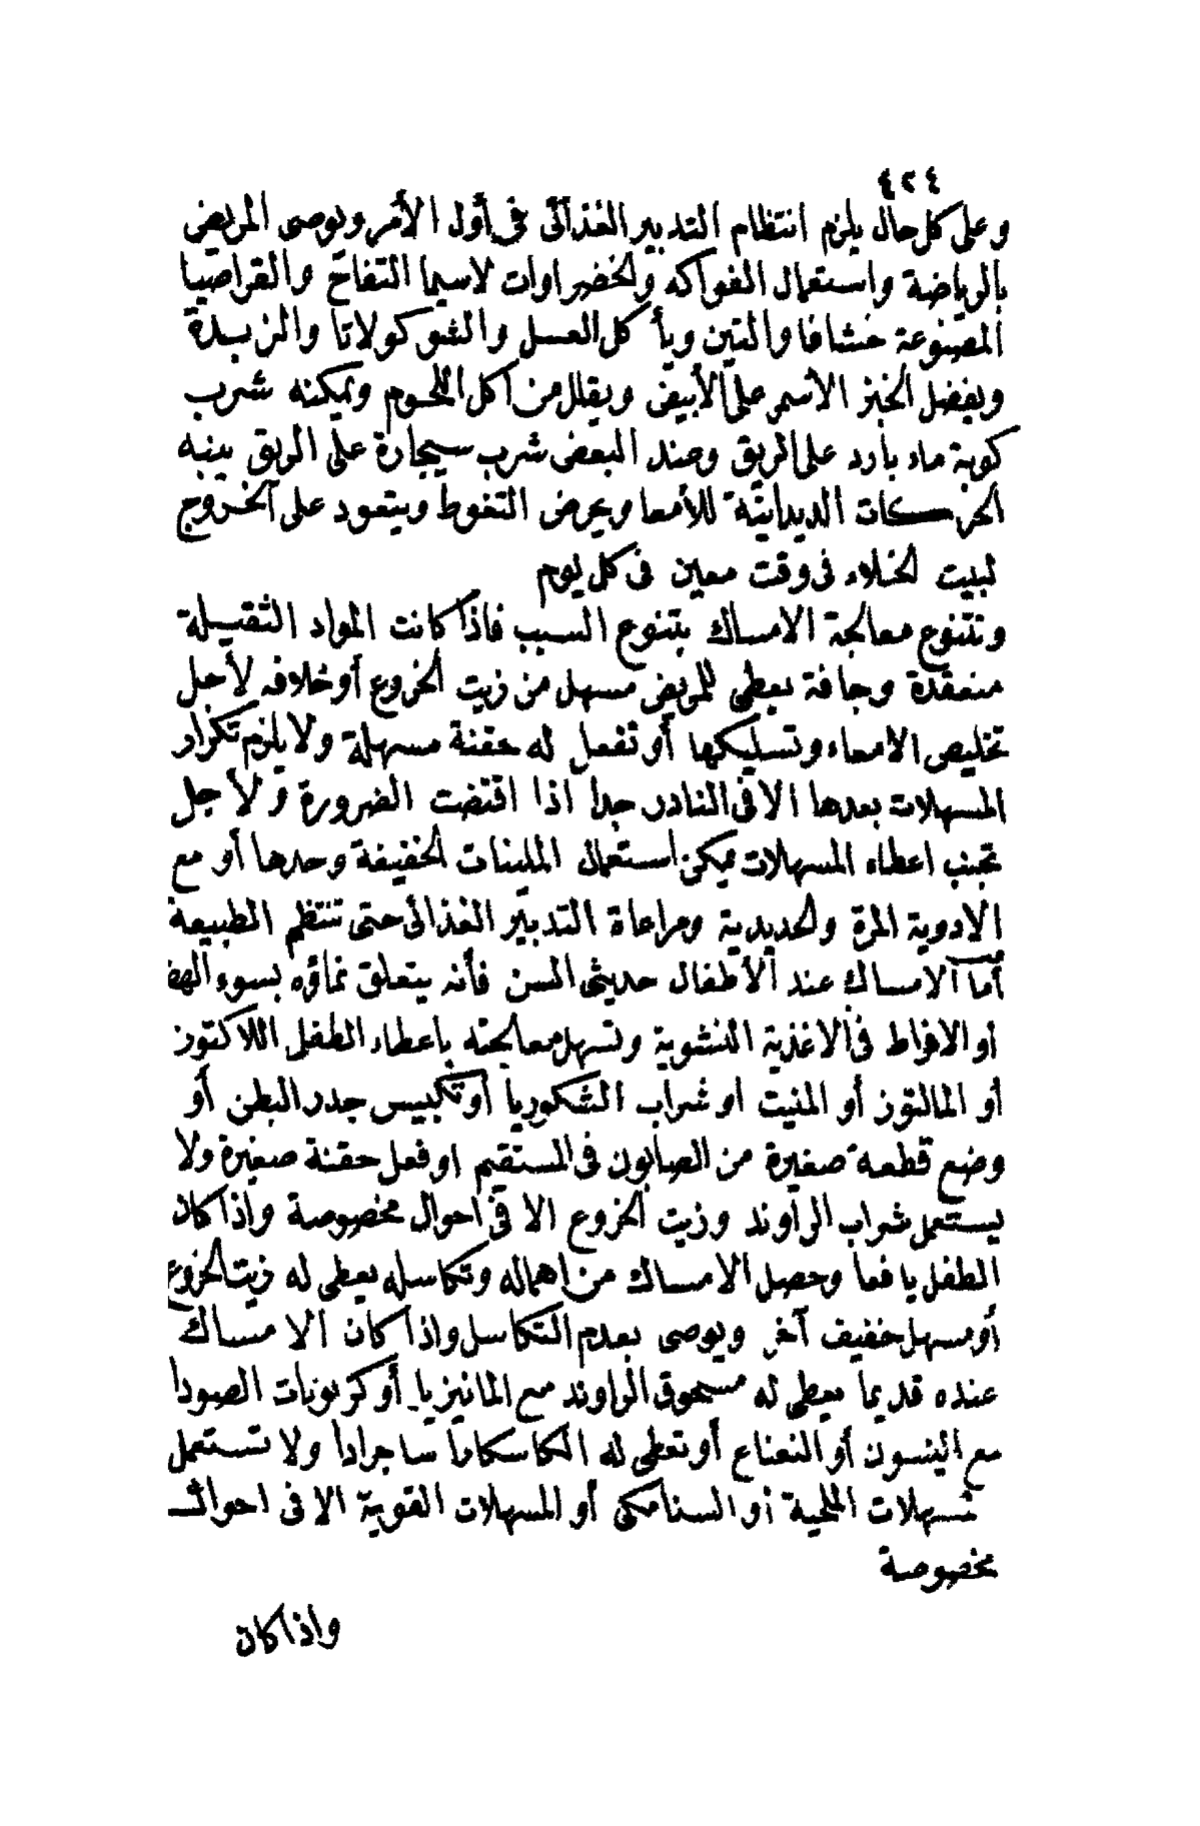 ٤٢٤
وعلى كل حال يلزم انتظام التدبير الغذائى فى أول الأمر ويوصى المريض
بالرياضة واستعمال الفواكه والخضراوات لاسيما التفاح والقراصيا
المصنوعة خشافا والتين ويأكل العسل والشوكولاتا والزبدة
ويفضل الخبز الاسمر على الأبيض ويقلل من أكل اللحوم ويمكنه شرب
كوبة ماء بارد على الريق وعند البعض شرب سيجارة على الريق ينبه
الحركات الديدانية للأمعا ويحرض التغوط ويتعود على الخروج
لبيت الخلاء فى وقت معين فى كل يوم
وتتنوع معالجة الامساك بتنوع السبب فاذا كانت المواد الثقيلة
منعقدة وجافة يعطى للمريض مسهل من زيت الخروع أو خلافه لأجل
تخليص الامعاء وتسليكها أو تفعل له حقنة مسهلة ولا يلزم تكرار
المسهلات بعدها الا فى النادر جدا اذا اقتضت الضرورة ولأجل
تجنب اعطاء المسهلات يمكن استعمال الملينات الخفيفة وحدها أو مع
الادوية المرة والحديدية ومراعاة التدبير الغذائى حتى تنتظم الطبيعة
أما الامساك عند الأطفال حديثى السن فأنه يتعلق نماؤه بسوء الهض
او الافراط فى الاغذية النشوية وتسهل معالجته باعطاء الطفل اللاكتوز
أو المالتوز أو المنيت او شراب الشكوريا أو تكبيس جدر البطن أو
وضع قطعة صغيرة من الصابون فى المستقيم او فعل حقنة صغيرة ولا
يستعمل شراب الراوند وزيت الخروع الا فى احوال مخصوصة واذا كان
الطفل يافعا وحصل الامساك من اهماله وتكاسله يعطى له زيت الخروع
أو مسهل خفيف آخر ويوصى بعدم التكاسل واذا كان الامساك
عنده قديما يعطى له مسحوق الراوند مع المانيزيا أو كربونات الصودا
مع الينسون أو النعناع أو تعطى له الكاسكارا ساجرادا ولا تستعمل
المسهلات الملحية أو السنامكى أو المسهلات القوية الا فى احوال
مخصوصة
واذا كان